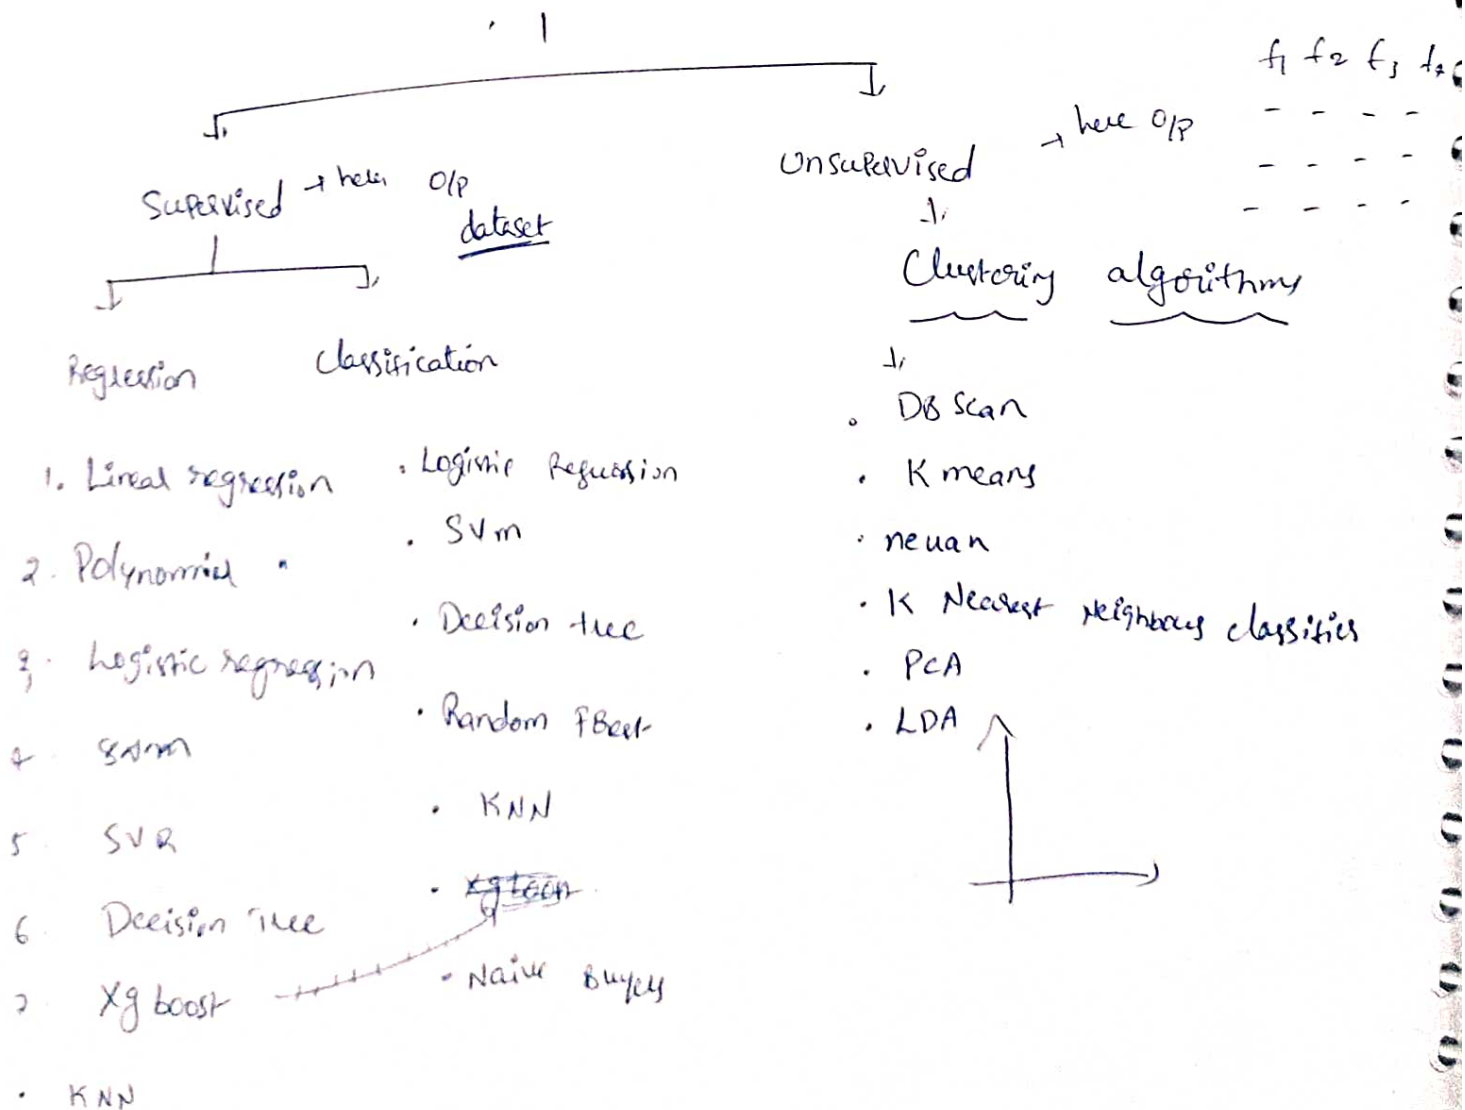 f1 f2 f3 f4
Supervised → here O/P
dataset
Unsupervised → here O/P
Clustering algorithms
Regression
Classification
1. Linear regression
2. Polynomial "
3. Logistic regression
4 SVM
5 SVR
6 Decision Tree
7 Xg boost
• KNN
• Logistic Regression
• SVM
• Decision tree
• Random
• KNN
• Naive
• DB Scan
• K means
• K Nearest Neighbours classifier
• PCA
• LDA